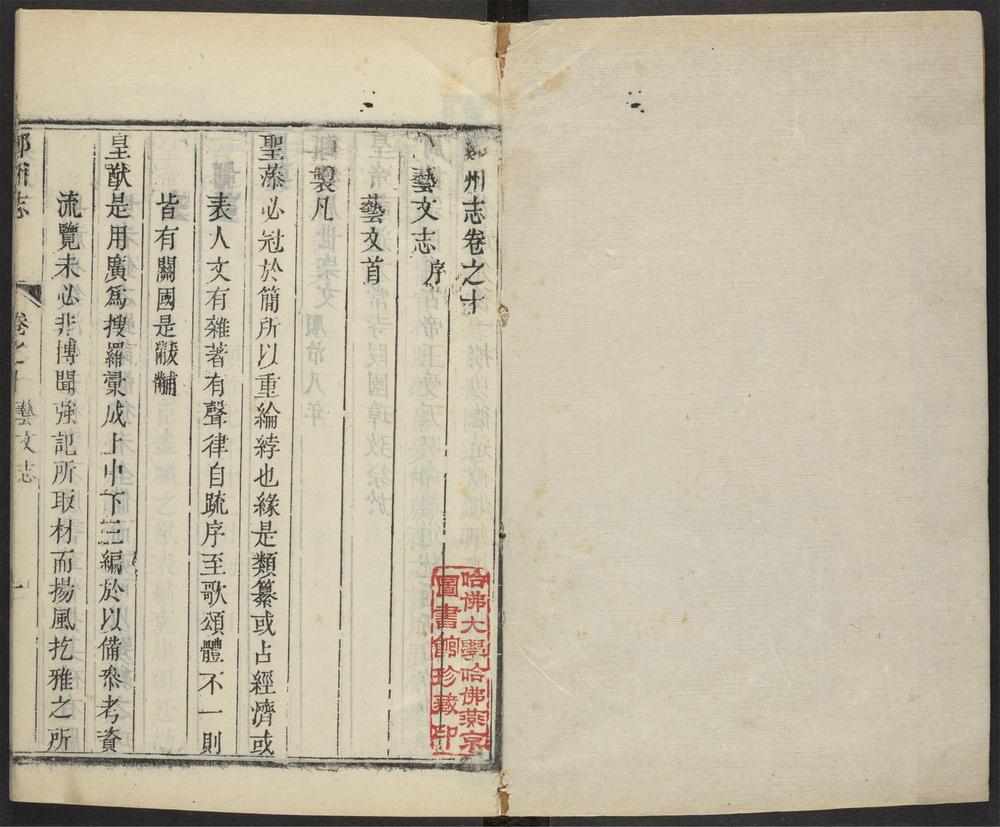 鄭州志卷之十
藝文志 序
藝文首
製凡
聖藻必冠於簡所以重綸綍也緣是類纂或占經濟或
表人文有雜著有聲律自疏序至歌頌體不一則
皆有關國是黻黼
皇猷是用廣為搜羅彚成上中下三編於以備叅考資
流覽未必非博聞強記所取材而揚風扢雅之所
鄭州志 卷之十 藝文志 一
哈佛大學哈佛燕京
圖書館珍藏印